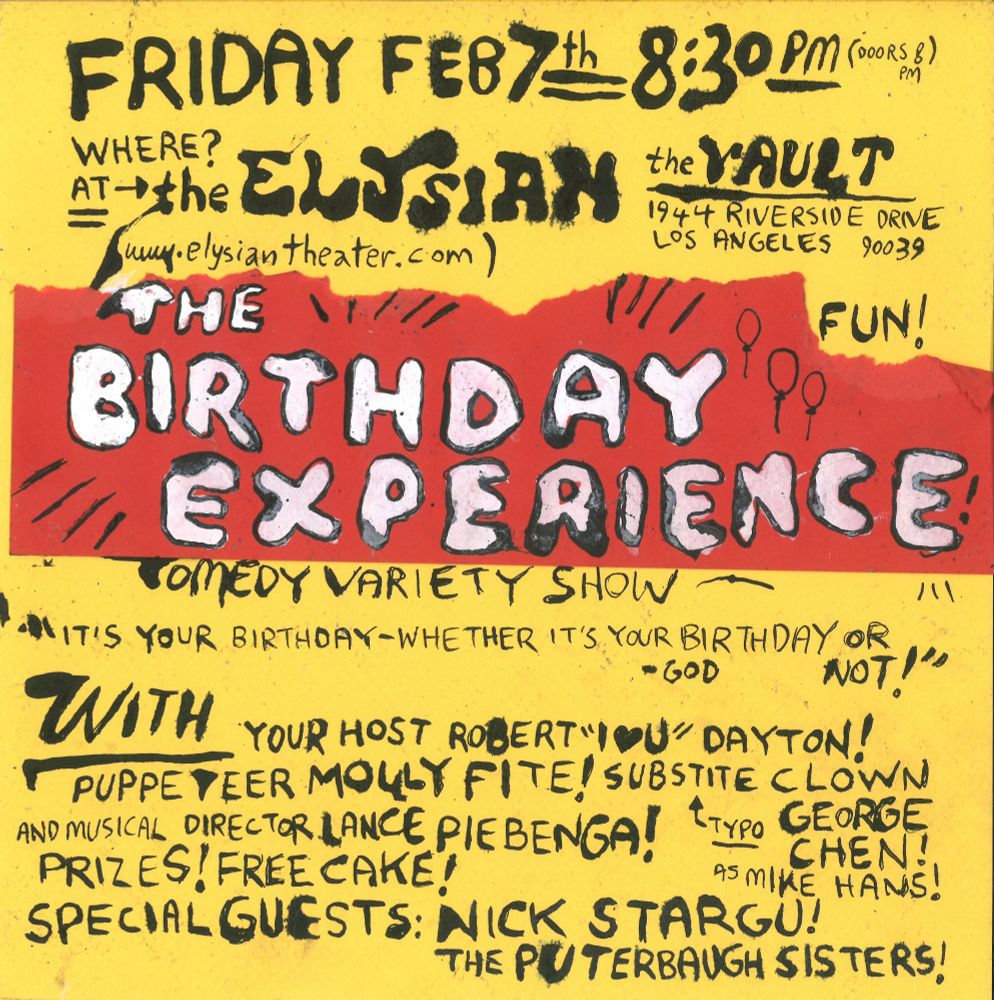 FRIDAY FEB 7th 8:30 PM (DOORS 8 PM)
WHERE?
AT → the ELYSIAN
the VAULT
1944 RIVERSIDE DRIVE
LOS ANGELES 90039
(www.elysiantheater.com)
FUN!
THE
BIRTHDAY
EXPERIENCE!
COMEDY VARIETY SHOW
"IT'S YOUR BIRTHDAY-WHETHER IT'S YOUR BIRTHDAY OR
NOT!"
-GOD
WITH
YOUR HOST ROBERT "I♥U" DAYTON!
PUPPETEER MOLLY FITE! SUBSTITE CLOWN
↑TYPO GEORGE
CHEN!
AS MIKE HANS!
AND MUSICAL DIRECTOR LANCE PIEBENGA!
PRIZES! FREE CAKE!
SPECIAL GUESTS: NICK STARGU!
THE PUTERBAUGH SISTERS!